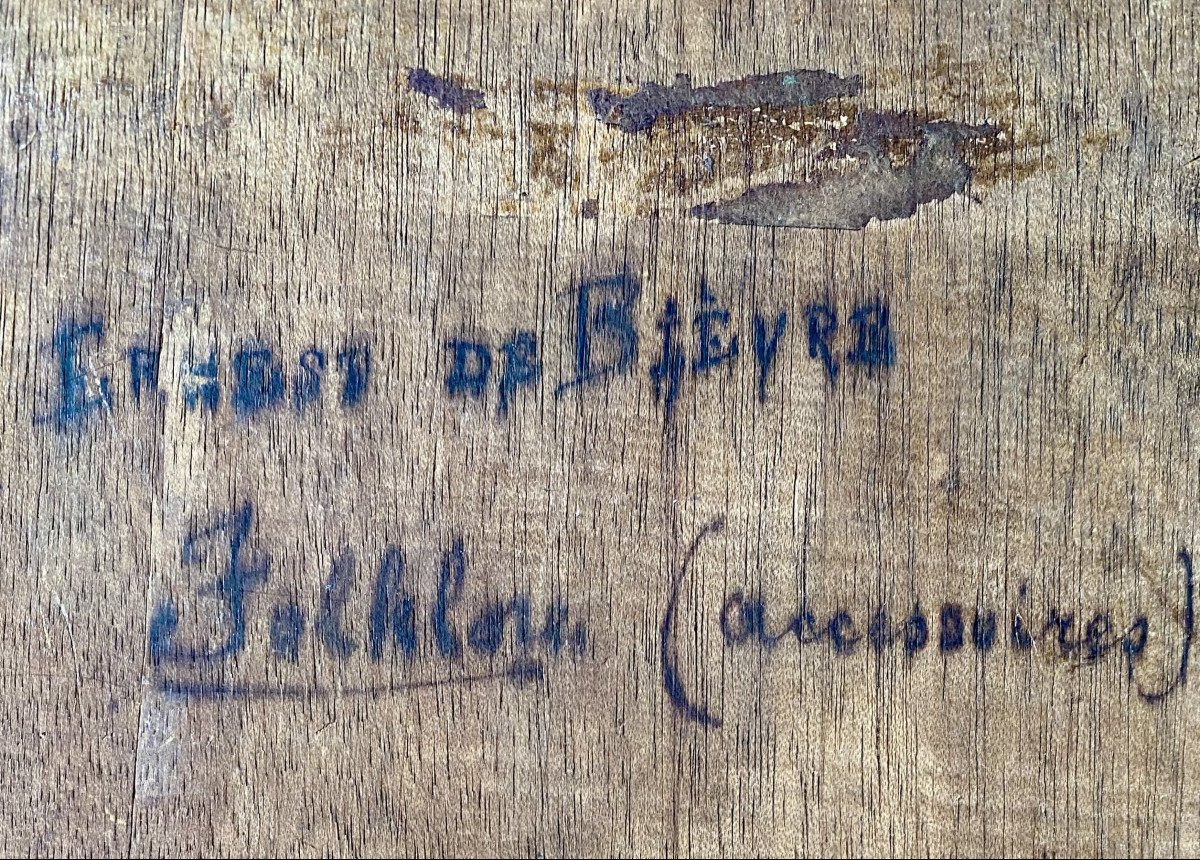 Ernest de Bièvre
Folklore (accessoires)